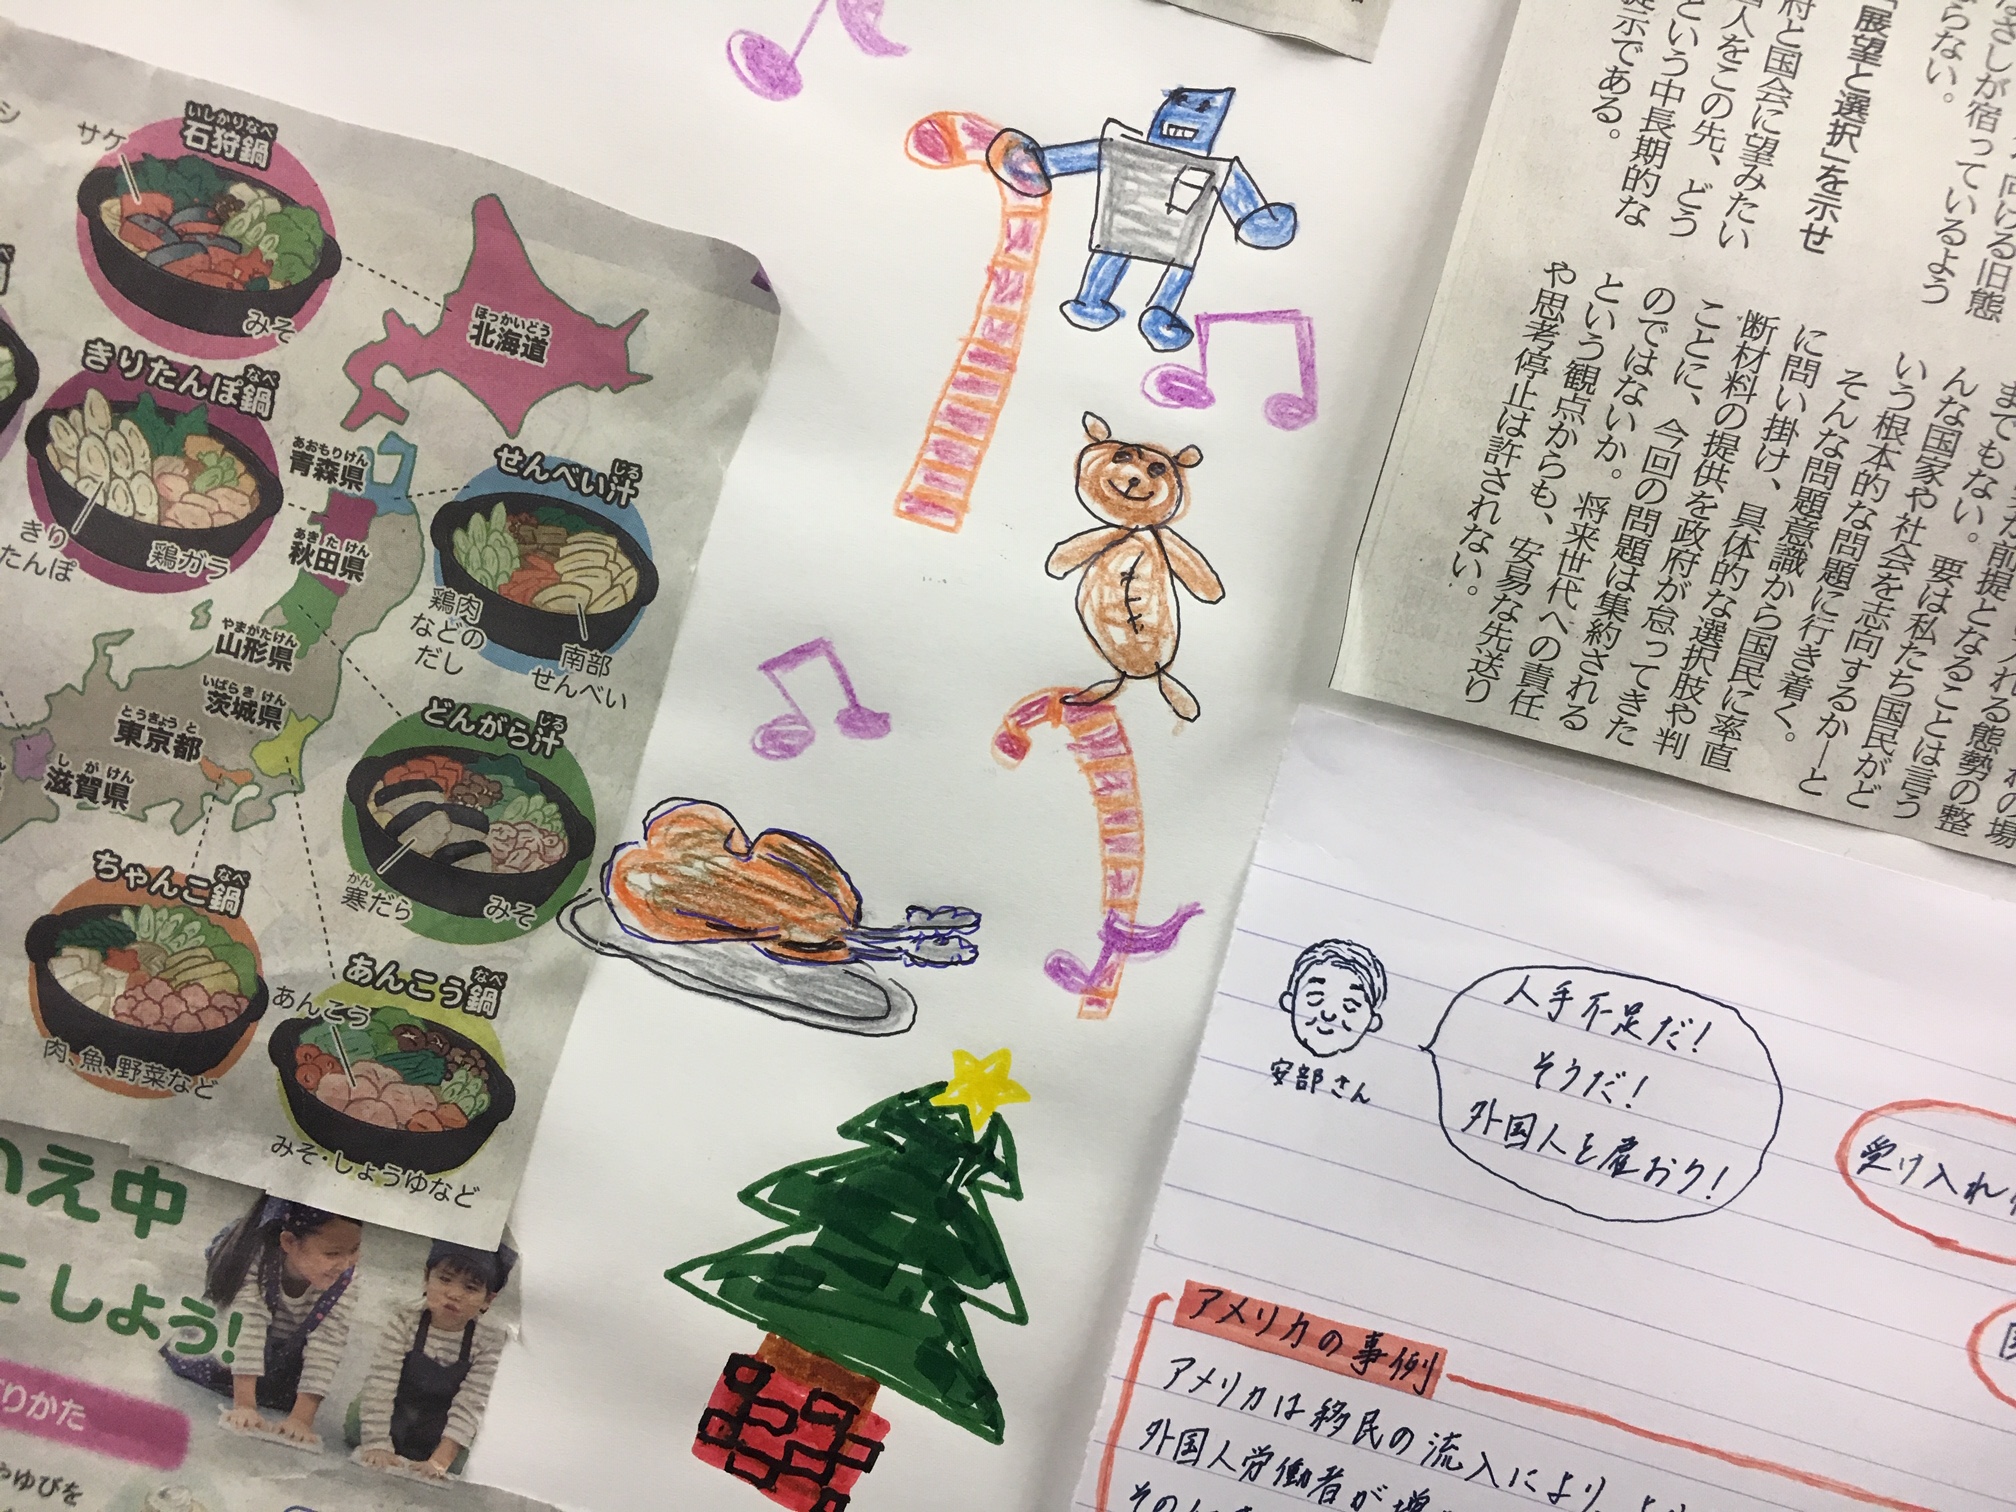 サケ
いしかりなべ
石狩鍋
みそ
ほっかいどう
北海道
きりたんぽ鍋
なべ
きり
たんぽ
鶏ガラ
あおもりけん
青森県
あきたけん
秋田県
せんべい汁
じる
鶏肉
などの
だし
南部
せんべい
やまがたけん
山形県
いばらきけん
茨城県
とうきょうと
東京都
しがけん
滋賀県
どんがら汁
じる
かん
寒だら
みそ
ちゃんこ鍋
なべ
肉、魚、野菜など
あんこう鍋
なべ
あんこう
みそ・しょうゆなど
え中
しよう!
りかた
ゆびを
さしが宿っているよう
らない。
「展望と選択」を示せ
府と国会に望みたい
国人をこの先、どう
という中長期的な
提示である。
前提となる態勢の整
までもない。要は私たち国民がど
んな国家や社会を志向するか―と
いう根本的な問題に行き着く。
そんな問題意識から国民に率直
に問い掛け、具体的な選択肢や判
断材料の提供を政府が怠ってきた
ことに、今回の問題は集約される
のではないか。将来世代への責任
という観点からも、安易な先送り
や思考停止は許されない。
安部さん
人手不足だ!
そうだ!
外国人を雇おう!
受け入れ
アメリカの事例
アメリカは移民の流入により、
外国人労働者が増